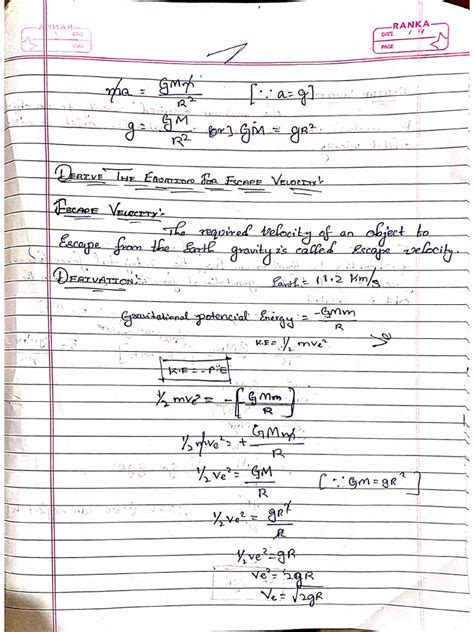 RANKA
DATE
PAGE
ma = GMm/R² [∵ a=g]
g = GM/R² (or) GM = gR²
DERIVE THE EQUATION FOR ESCAPE VELOCITY:
ESCAPE VELOCITY:
The required velocity of an object to
Escape from the Earth gravity is called Escape velocity.
DERIVATION:- Earth = 11.2 Km/s
Gravitational potencial Energy = -GMm/R
K.E = 1/2 mve²
K.E = -P.E
1/2 mve² = -[GMm/R]
1/2 mve² = + GMm/R
1/2 ve² = GM/R [∵ GM = gR²]
1/2 ve² = gR²/R
1/2 ve² = gR
ve² = 2gR
Ve = √2gR